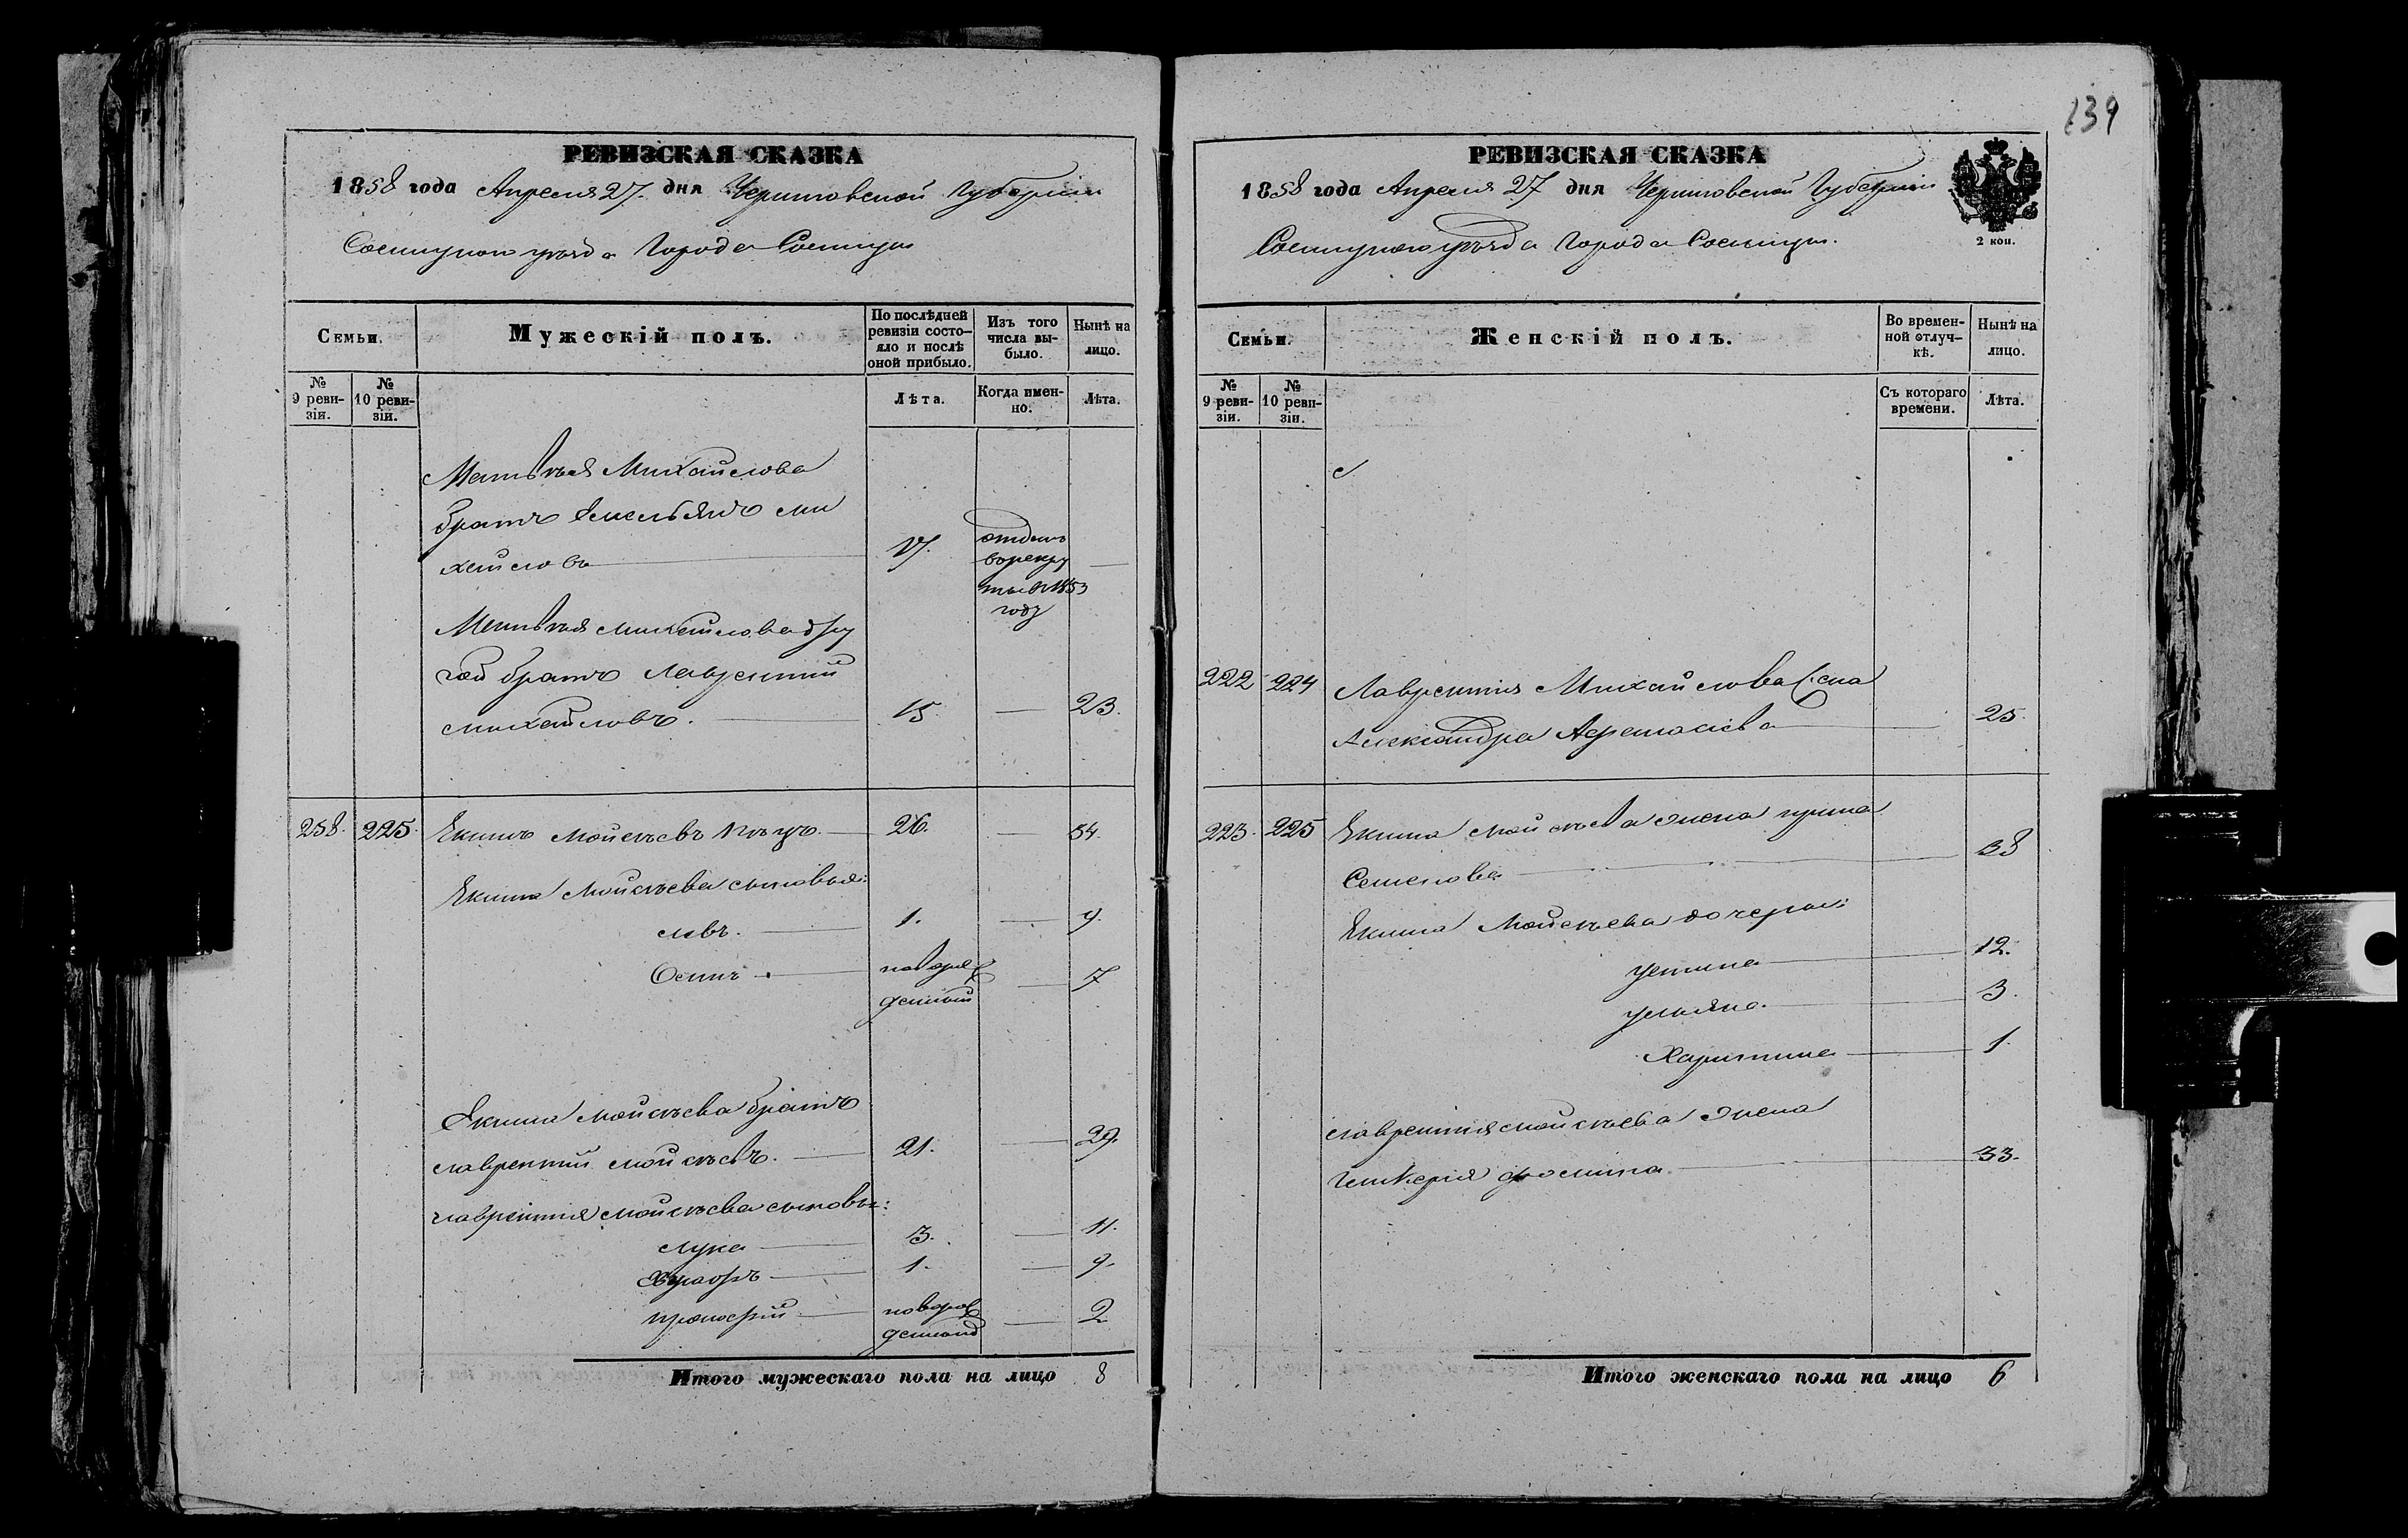 139
РЕВИЗСКАЯ СКАЗКА
1858 года Апреля 27. дня Черниговской Губернiи
Сосницкого уѣзда Города Сосницы
Семьи.
Мужескiй полъ.
По послѣдней ревизiи состояло и послѣ оной прибыло.
Изъ того числа выбыло.
Нынѣ на лицо.
№ 9 ревизiи.
№ 10 ревизiи.
Лѣта.
Когда именно.
Лѣта.
Матвѣя Михайлова
братъ Емельянъ Ми
хайловъ 17. отданъ
в рекру
ты в 1853
году
Матвѣя Михайлова дру
гой братъ Лаврентiй
Михайловъ. 15. 23.
258. 225. Якимъ Мойсѣевъ 26. 34.
Якима Мойсѣева сыновья:
Левъ. 1. 9.
Осипъ 7
новорож
денный
Якима Мойсѣева братъ
Лаврентiй Мойсѣевъ. 21. 29.
Лаврентiя Мойсѣева сыновья:
Лука 3. 11.
1. 9.
Прокофiй 2
новорож
Итого мужескаго пола на лицо 8
РЕВИЗСКАЯ СКАЗКА
1858 года Апреля 27 дня Черниговской Губернiи
Сосницкого уѣзда Города Сосницы.
2 коп.
Семьи.
Женскiй полъ.
Во временной отлучкѣ.
Нынѣ на лицо.
№ 9 ревизiи.
№ 10 ревизiи.
Съ котораго времени.
Лѣта.
222 224 Лаврентiя Михайлова жена
Александра Афанасiева 25.
223. 225 Якима Мойсѣева жена Ирина
Семенова 38
Якима Мойсѣева дочери:
Устина 12.
Ульяна 3.
Харитина 1.
Лаврентiя Мойсѣева жена
Гликерiя Фомина 33.
Итого женскаго пола на лицо 6